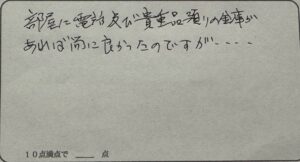 部屋に電話及び貴重品預りの金庫が
あれば尚に良かったのですが・・・・
10点満点で ＿＿ 点